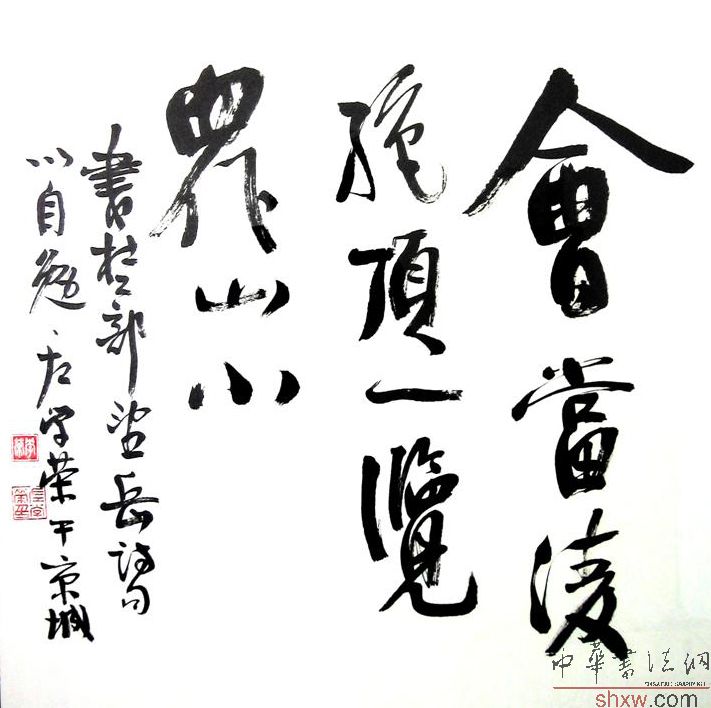 會當淩
絕頂一覽
眾山小
書杜部望岳詩句
以自勉 左学荣于京城
中華書法網
shxw.com